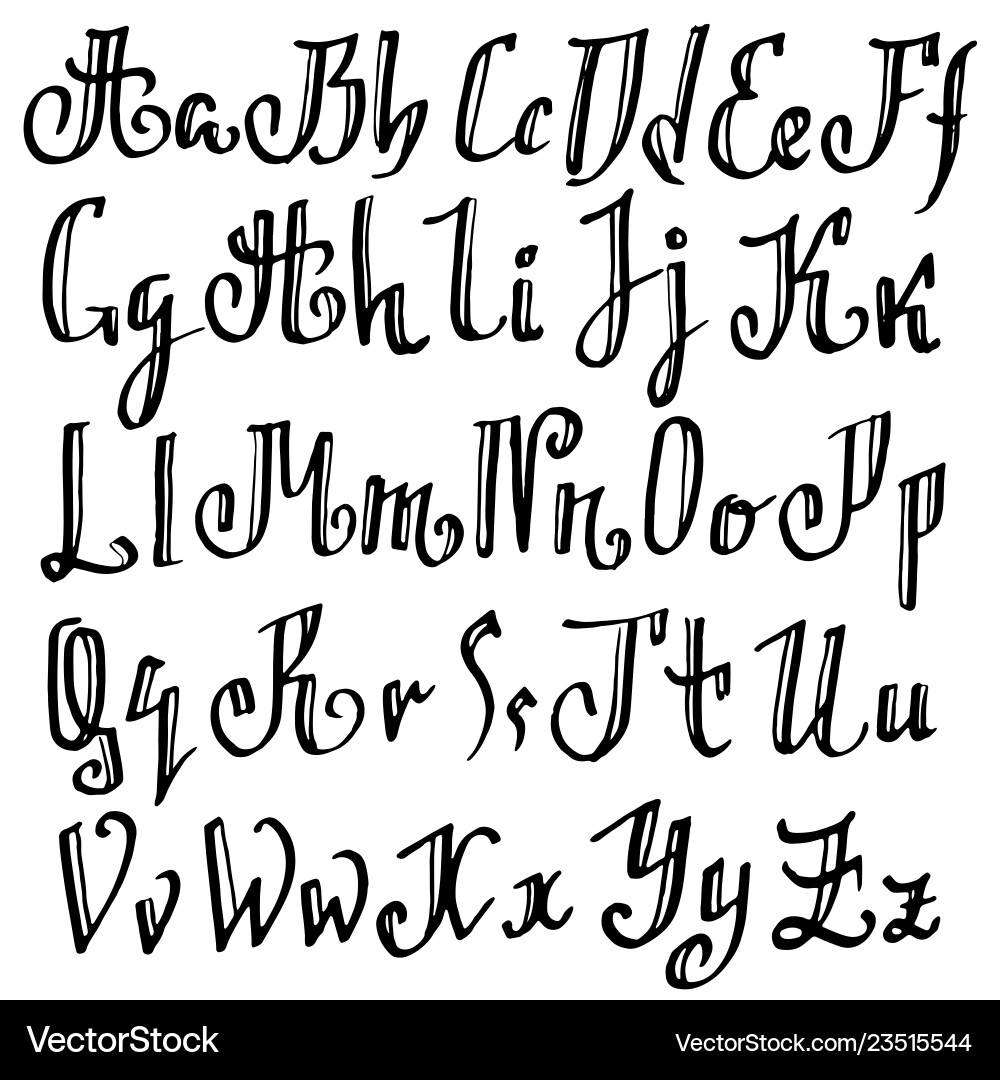 Aa Bb Cc Dd Ee Ff
Gg Hh Ii Jj Kk
Ll Mm Nn Oo Pp
Qq Rr Ss Tt Uu
Vv Ww Xx Yy Zz
VectorStock
VectorStock.com/23515544